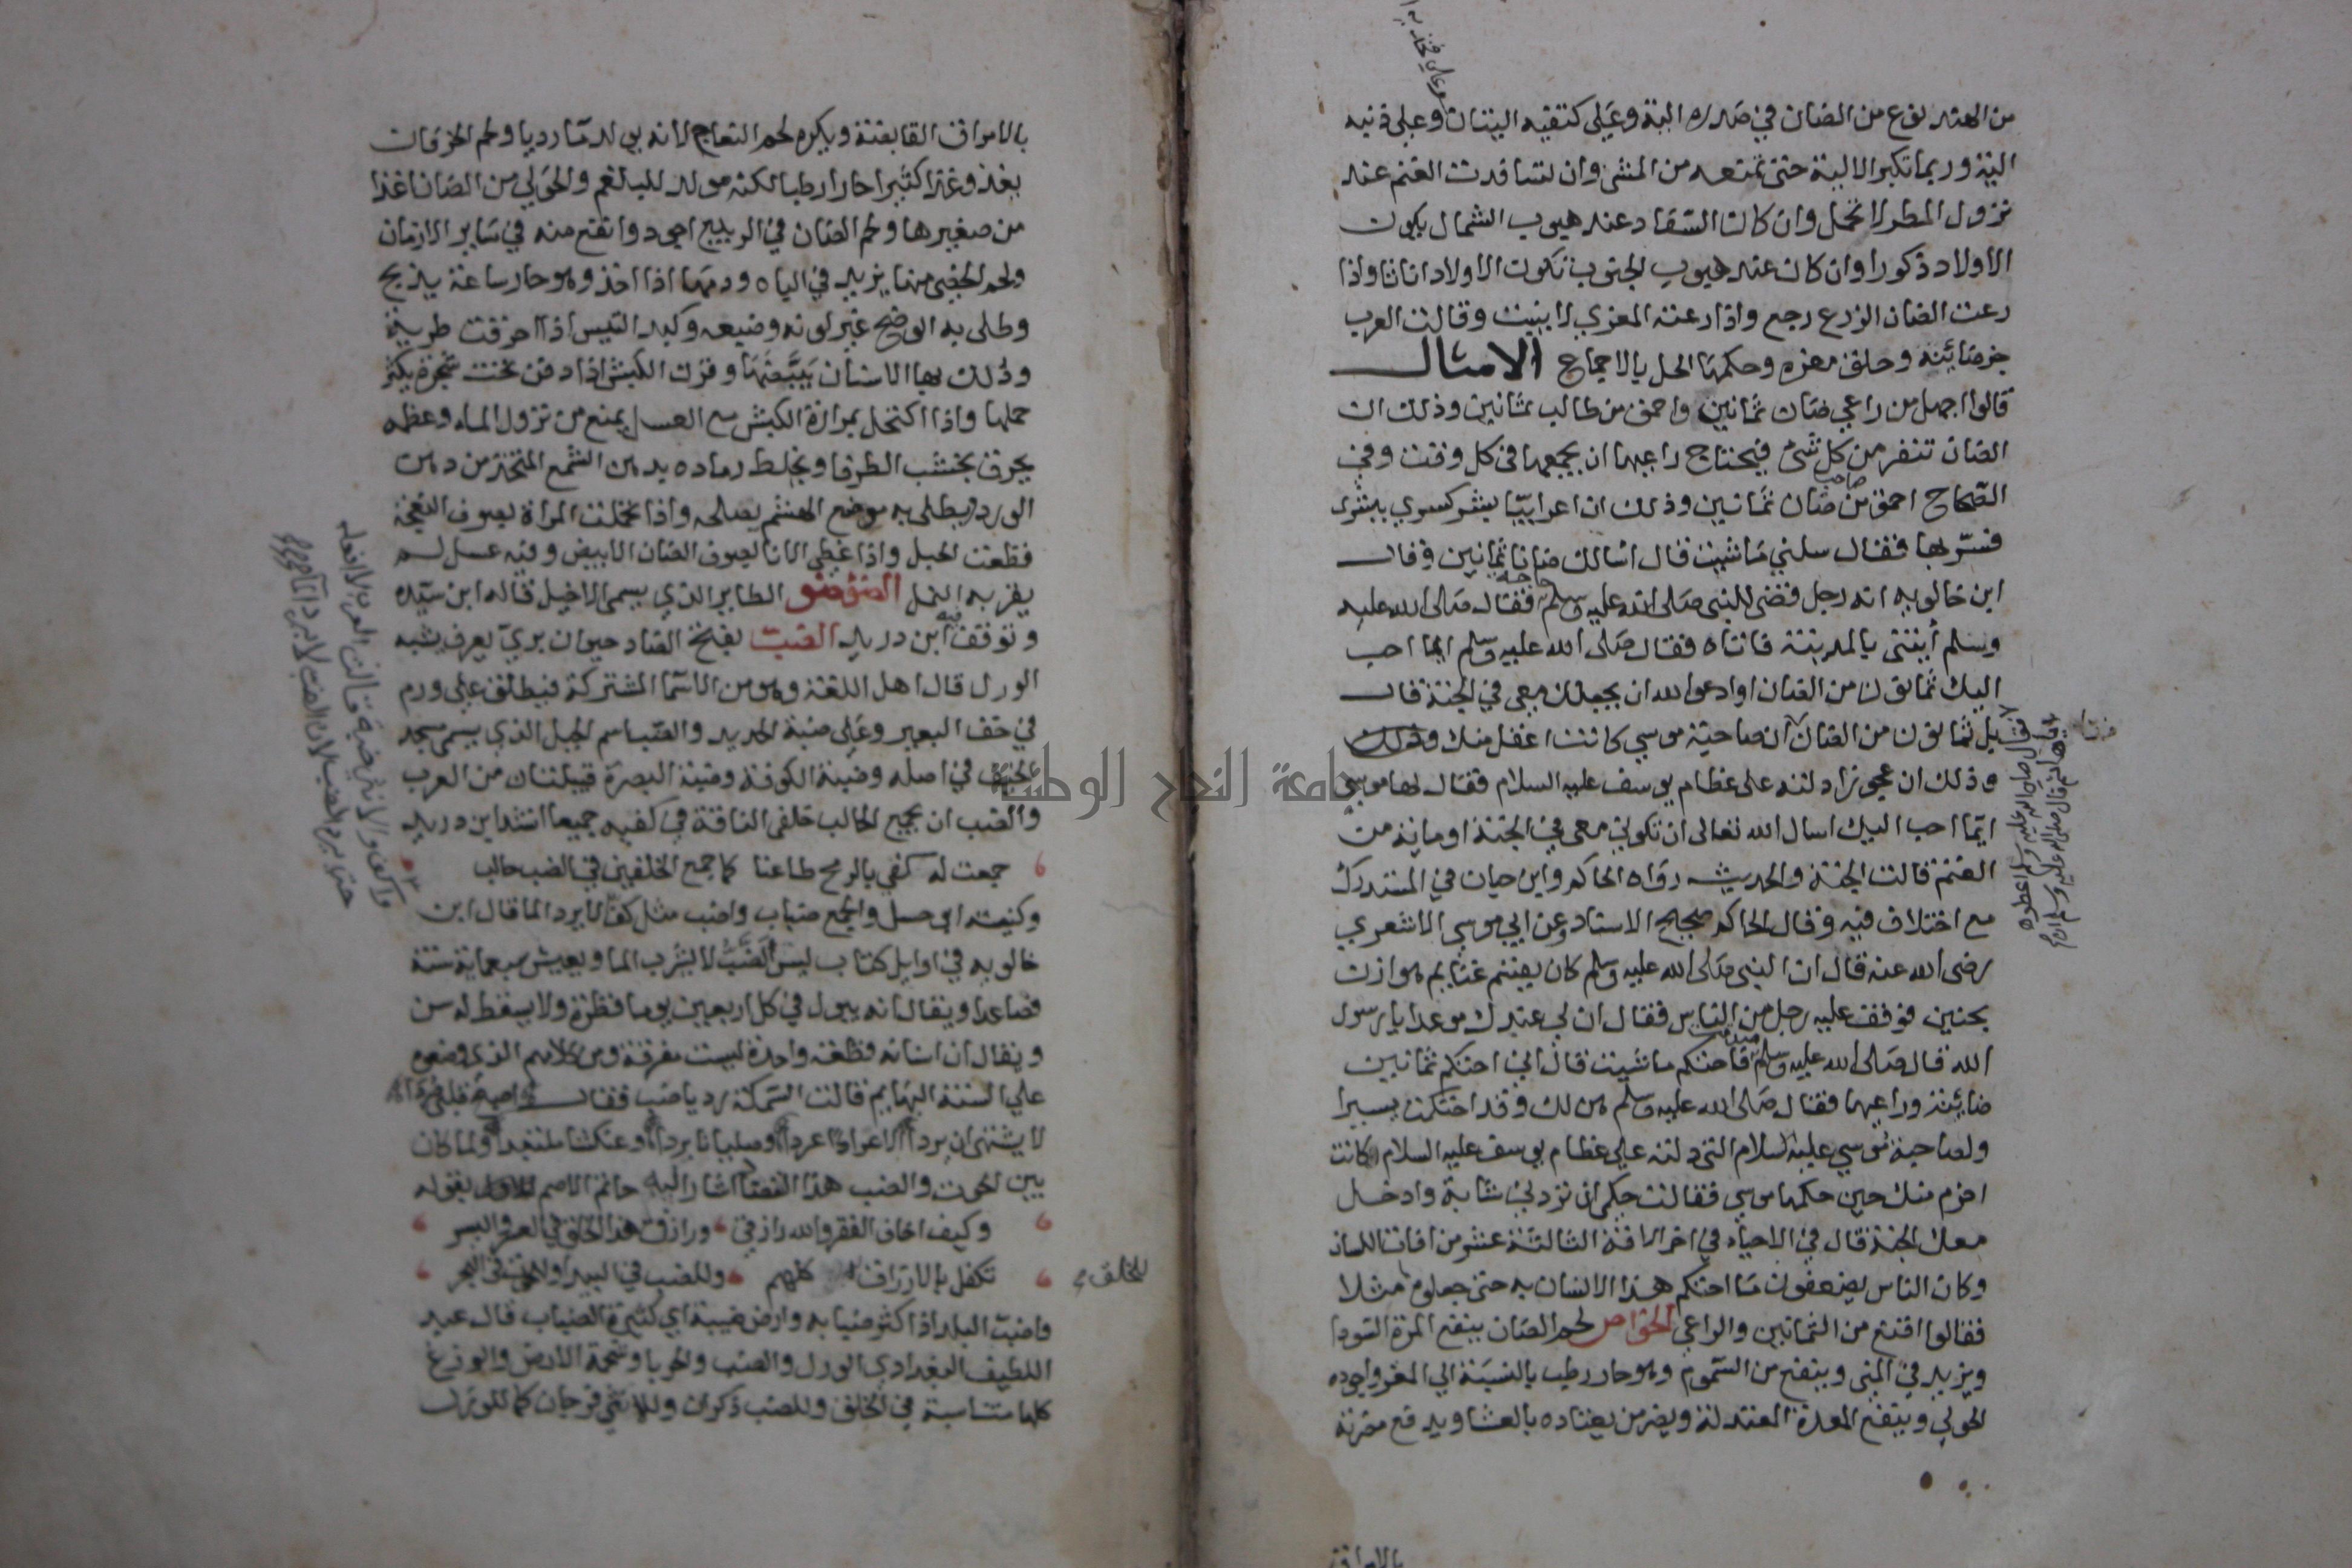 وعلى فخذيه ا
من الهند نوع من الضان في صدره الية وعلى كتفيه اليتان وعلى ذنبه
الية وربما تكبر الالية حتى تمنعه من المشي وان تسافدت الغنم عند
نزول المطر لا تحمل وان كان السفاد عند هبوب الشمال يكون
الاولاد ذكورا وان كان عند هبوب الجنوب تكون الاولاد اناثا واذا
رعت الضان الزرع رجع واذا رعته المعزي لا ينبت وقالت العرب
جز ضاينة وحلق معزه وحكمها الحل بالاجماع الامثال
قالوا اجهل من راعي ضان ثمانين واحمق من طالب ثمانين وذلك ان
الضان تنفر من كل شئ فيحتاج راعيها ان يجمعها في كل وقت وفي
الصحاح احمق من صاحب ضان ثمانين وذلك ان اعرابيا بشر كسري ببشرى
فسر بها فقال سلني ما شيت قال اسالك ضانا ثمانين وقال
ابن خالويه انه رجل قضى للنبي صلى الله عليه وسلم حاجة فقال صلى الله عليه
وسلم أيتني بالمدينة فاتاه فقال صلى الله عليه وسلم ايما احب
اليك ثمانون من الضان او ادعوا الله ان يجعلك معي في الجنة قال
بل ثمانون من الضان ان صاحبة موسي كانت اعقل منك وذلك
فقال صلى الله عليه وسلم اعطوه
اياها ثم قال صلى الله عليه وسلم ان
وذلك ان عجوزا دلته على عظام يوسف عليه السلام فقال لها موسي
ايما احب اليك اسال الله تعالى ان تكوني معي في الجنة او ماية من
الغنم قالت الجنة والحديث رواه الحاكم وابن حبان في المستدرك
مع اختلاف فيه وقال الحاكم صحيح الاسناد وعن ابي موسي الاشعري
رضى الله عنه قال ان النبي صلى الله عليه وسلم كان يقسم غنايم هوازن
بحنين فوقف عليه رجل من الناس فقال ان لي عندك موعدا يا رسول
الله قال صلى الله عليه وسلم صدقت فاحتكم ما شيت قال اني احتكم ثمانين
ضاينة وراعيها فقال صلى الله عليه وسلم هن لك وقد احتكمت يسيرا
ولصاحبة موسي عليه السلام التي دلته على عظام يوسف عليه السلام كانت
احزم منك حين حكمها موسي فقالت حكمي ان تردني شابة وادخل
معك الجنة قال في الاحياء في اخر الافة الثالثة عشر من افات اللسان
وكان الناس يضعفون ما احتكم هذا الانسان به حتى جعلوه مثلا
فقالوا اقنع من الثمانين والراعي الخواص لحم الضان ينفع المرة السودا
ويزيد في المني وينفع من السموم وهو حار رطب بالنسبة الى المعز واجوده
الحولي وينفع المعدة المعتدلة ويضر من يعتاده بالغشا ويدفع مضرته
بالامراق
بالامراق القابضة ويكره لحم النعاج لانه يولد دما رديا ولحم الخرفان
يغذو غذا كثيرا حارا رطبا لكنه مولد للبلغم والحولي من الضان اغذا
من صغيرها ولحم الضان في الربيع اجود وانفع منه في ساير الازمان
ولحم الخصي منها يزيد في الباه ودمها اذا اخذ وهو حار ساعة يذبح
وطلى به الوضح غير لونه وضيعه وكبد التيس اذا احرقت طرية
وذلك بها الاسنان بيضتها وقرن الكبش اذا دفن تحت شجرة يكثر
حملها واذا اكتحل بمرارة الكبش مع العسل يمنع من نزول الماء وعظمه
يحرق بخشب الطرفا ويخلط رماده بدهن الشمع المتخذ من دهن
الورد ويطلى به موضع الهشم يصلحه واذا تحملت المراة بصوف النعجة
قطعت الحبل واذا غطى الانا بصوف الضان الابيض وفيه عسل لم
يقربه النمل الضؤضؤ الطاير الذي يسمى الاخيل قاله ابن سيده
وتوقف فيه ابن دريد الضب بفتح الضاد حيوان بري يعرف يشبه
الورل قال اهل اللغة وهو من الاسما المشتركة فيطلق على ورم
في خف البعير وعلى ضبة الحديد والضب اسم الجبل الذي بسمى مسجد
الخيف في اصله وضبة الكوفة وضبة البصرة قبيلتان من العرب
والضب ان يجمع الحالب خلفي الناقة في كفيه جميعا انشد ابن دريد
جمعت له كفي بالرمح طاعنا كما جمع الخلفين في الضب حالب
وكنيته ابو حسل والجمع ضباب واضب مثل كف
واكف والانثى ضبة قالت العرب لا افعله
حتى يرد الضب لان الضب لا يرد الما
لا يرد الما قال ابن
خالويه في اوايل كتاب ليس الضب لا يشرب الما ويعيش سبعماية سنة
فصاعدا ويقال انه يبول في كل اربعين يوما قطرة ولا يسقط له سن
ويقال ان اسنانه قطعة واحدة ليست مفرقة ومن كلامهم الذي وضعوه
على السنة البهايم قالت السمكة رد يا ضب فقال اصبح قلبي صردا
لا يشتهي ان يردا الا عرادا عردا وصليانا بردا وعنكثا ملتبدا ولما كان
بين الحوت والضب هذا التضاد اشار اليه حاتم الاصم بقوله
وكيف اخاف الفقر والله رازقي ورازق هذا الخلق في العسر واليسر
تكفل بالارزاق للخلق كلهم وللضب في البيدا وللحوت في البحر
واضبت البلد اذا كثر ضبابه وارض ضببة اي كثيرة الضباب قال عبد
اللطيف البغدادي الورل والضب والحربا وشحمة الارض والوزغ
كلها متناسبة في الخلق وللضب ذكران وللانثى فرجان كما للورل
جامعة النجاح الوطنية